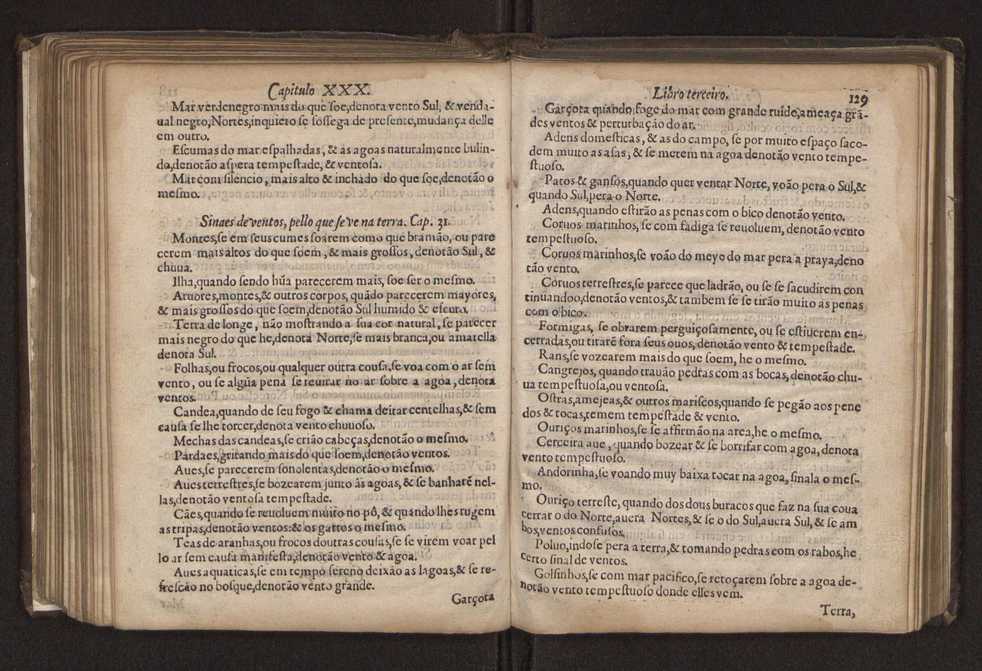 Capitulo XXX.
Mar verdenegro mais do que soe,denota vento Sul, & venda-
ual negro,Nortes,inquieto se sossega de presente,mudança delle
em outro.
Escumas do mar espalhadas, & as agoas naturalmente bulin-
do,denotão aspera tempestade, & ventosa.
Mar com silencio, mais alto & inchado do que soe,denota o
mesmo.
Sinaes de ventos, pello que se ve na terra. Cap. 31.
Montes,se em seus cumes soarem como que bramão, ou pare
cerem mais altos do que soem, & mais grossos, denotão Sul, &
chuua.
Ilha,quando sendo hũa parecerem mais, soe ser o mesmo.
Aruores,montes,& outros corpos, quãdo parecerem mayores,
& mais grossos do que soem,denotão Sul humido & escuro.
Terra de longe, não mostrando a sua cor natural, se parecer
mais negro do que he,denota Norte,se mais branca,ou amarella
denota Sul.
Folhas,ou frocos,ou qualquer outra cousa,se voa com o ar sem
vento, ou se algũa pena se reuirar no ar sobre a agoa, denota
ventos.
Candea,quando de seu fogo & chama deitar centelhas,& sem
causa se lhe torcer,denota vento chuuoso.
Mechas das candeas,se crião cabeças,denotão o mesmo.
Pardaes,gritando mais do que soem,denotão ventos.
Aues,se parecerem sonolentas,denotão o mesmo.
Aues terrestres,se bozearem junto às agoas, & se banharẽ nel-
las,denotão ventosa tempestade.
Cães,quando se reuoluem muito no pò, & quãndo lhes rugem
as tripas,denotão ventos:& os gattos o mesmo.
Teas de aranhas,ou frocos doutras cousas,se se virem voar pel
lo ar sem causa manifesta,denotão vento & agoa.
Aues aquaticas,se em tempo sereno deixão as lagoas,& se re-
frescão no bosque,denotão vento grande.
Garçota
Libro terceiro.
129
Garçota quando foge do mar com grande ruido,ameaça grã-
des ventos & perturbação do ar.
Adens domesticas, & as do campo, se por muito espaço saco-
dem muito as asas, & se metem na agoa denotão vento tempe-
stuoso.
Patos & gansos,quando quer ventar Norte, voão pera o Sul,&
quando Sul,pera o Norte.
Adens,quando estirão as penas com o bico denotão vento.
Coruos marinhos, se com fadiga se reuoluem, denotão vento
tempestuoso.
Coruos marinhos,se voão do meyo do mar pera a praya,deno
tão vento.
Coruos terrestres,se parece que ladrão, ou se se sacudirem con
tinuandoo,denotão ventos,& tambem se se tirão muito as penas
com o bico.
Formigas, se obrarem perguiçosamente, ou se estiuerem en-
cerradas,ou tirarẽ fora seus ouos, denotão vento & tempestade.
Rans,se vozearem mais do que soem, he o mesmo.
Cangrejos, quando trauão pedras com as bocas, denotão chu-
ua tempestuosa,ou ventosa.
Ostras,amejeas,& outros mariscos,quando se pegão aos pene
dos & tocas,temem tempestade & vento.
Ouriços marinhos,se se affirmão na area,he o mesmo.
Cerceira aue, quando bozear & se borrifar com agoa, denota
vento tempestuoso.
Andorinha,se voando muy baixa tocar na agoa, sinala o mes-
mo.
Ouriço terreste, quando dos dous buracos que faz na sua coua
cerrar o do Norte,auera Nortes,& se o do Sul,auera Sul,& se am
bos,ventos confusos.
Poluo,indose pera a terra,& tomando pedras com os rabos,he
certo sinal de ventos.
Golfinhos,se com mar pacifico,se retoçarem sobre a agoa de-
notão vento tempestuoso donde elles vem.
Terra,